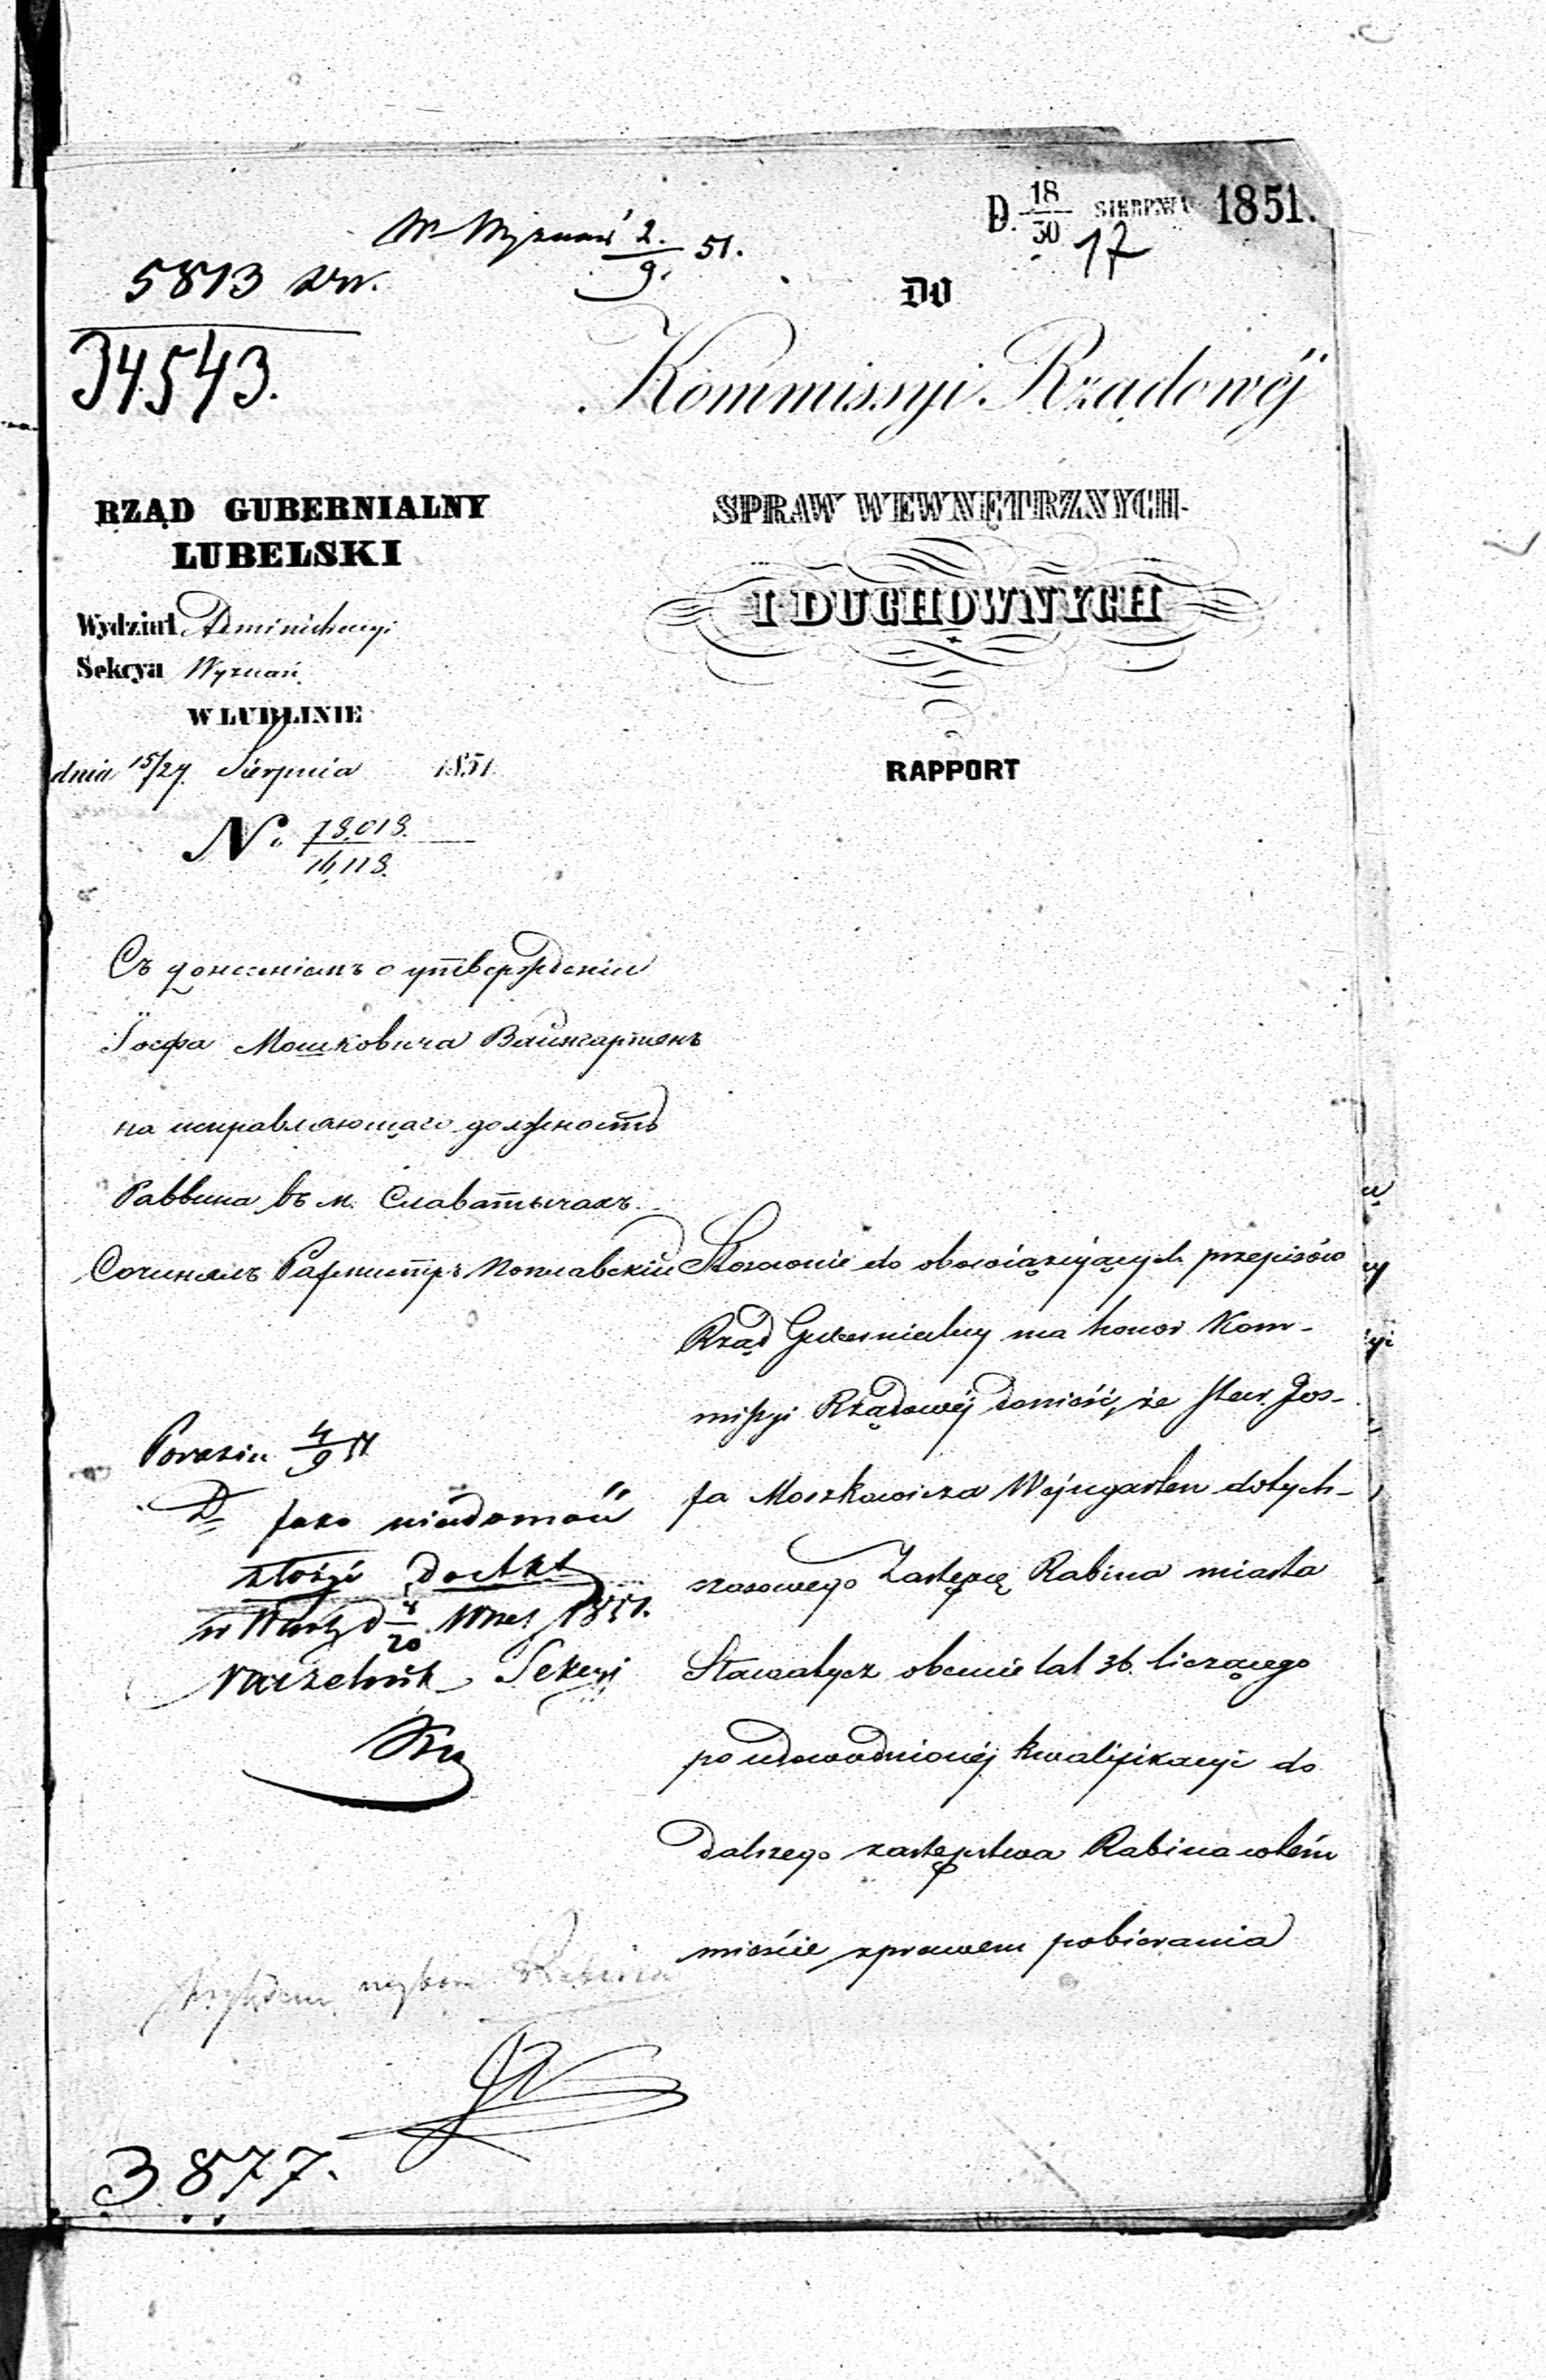 D. 18/30 SIERPNIA 1851.
17
W Wyznań 2./9. 51.
5813
34543.
DO
Kommissyi Rządowéj
SPRAW WEWNĘTRZNYCH
I DUCHOWNYCH
RAPPORT
RZĄD GUBERNIALNY
LUBELSKI
Wydział Administracyi
Sekcya Wyznań
W LUBLINIE
dnia 15/27 Sierpnia 1851
No. 78,018.
16,118.
Съ донесеніемъ о утвержденіи
Іосфа Мошковича Вайнгартенъ
на исправляющаго должность
Раввина въ м. Славатычахъ.
Сочинялъ Ратмистръ Поплавскій
Stosownie do obowiązujących przepisów
Rząd Gubernialny ma honor Kom-
missyi Rządowéj donieść, że Star. Jos-
fa Moszkowicza Wejngarten dotych-
czasowego Zastępcę Rabina miasta
Sławatycz obecnie lat 36 liczącego
po udowodnionéj kwalifikacyi do
dalszego zastępstwa Rabina w tém
mieście z prawem pobierania
4/9 51
Jako wiadomość
złożyć do akt
d 8/20 Wrześ 1851.
Naczelnik Sekcyi
wyboru Rabina
3877.